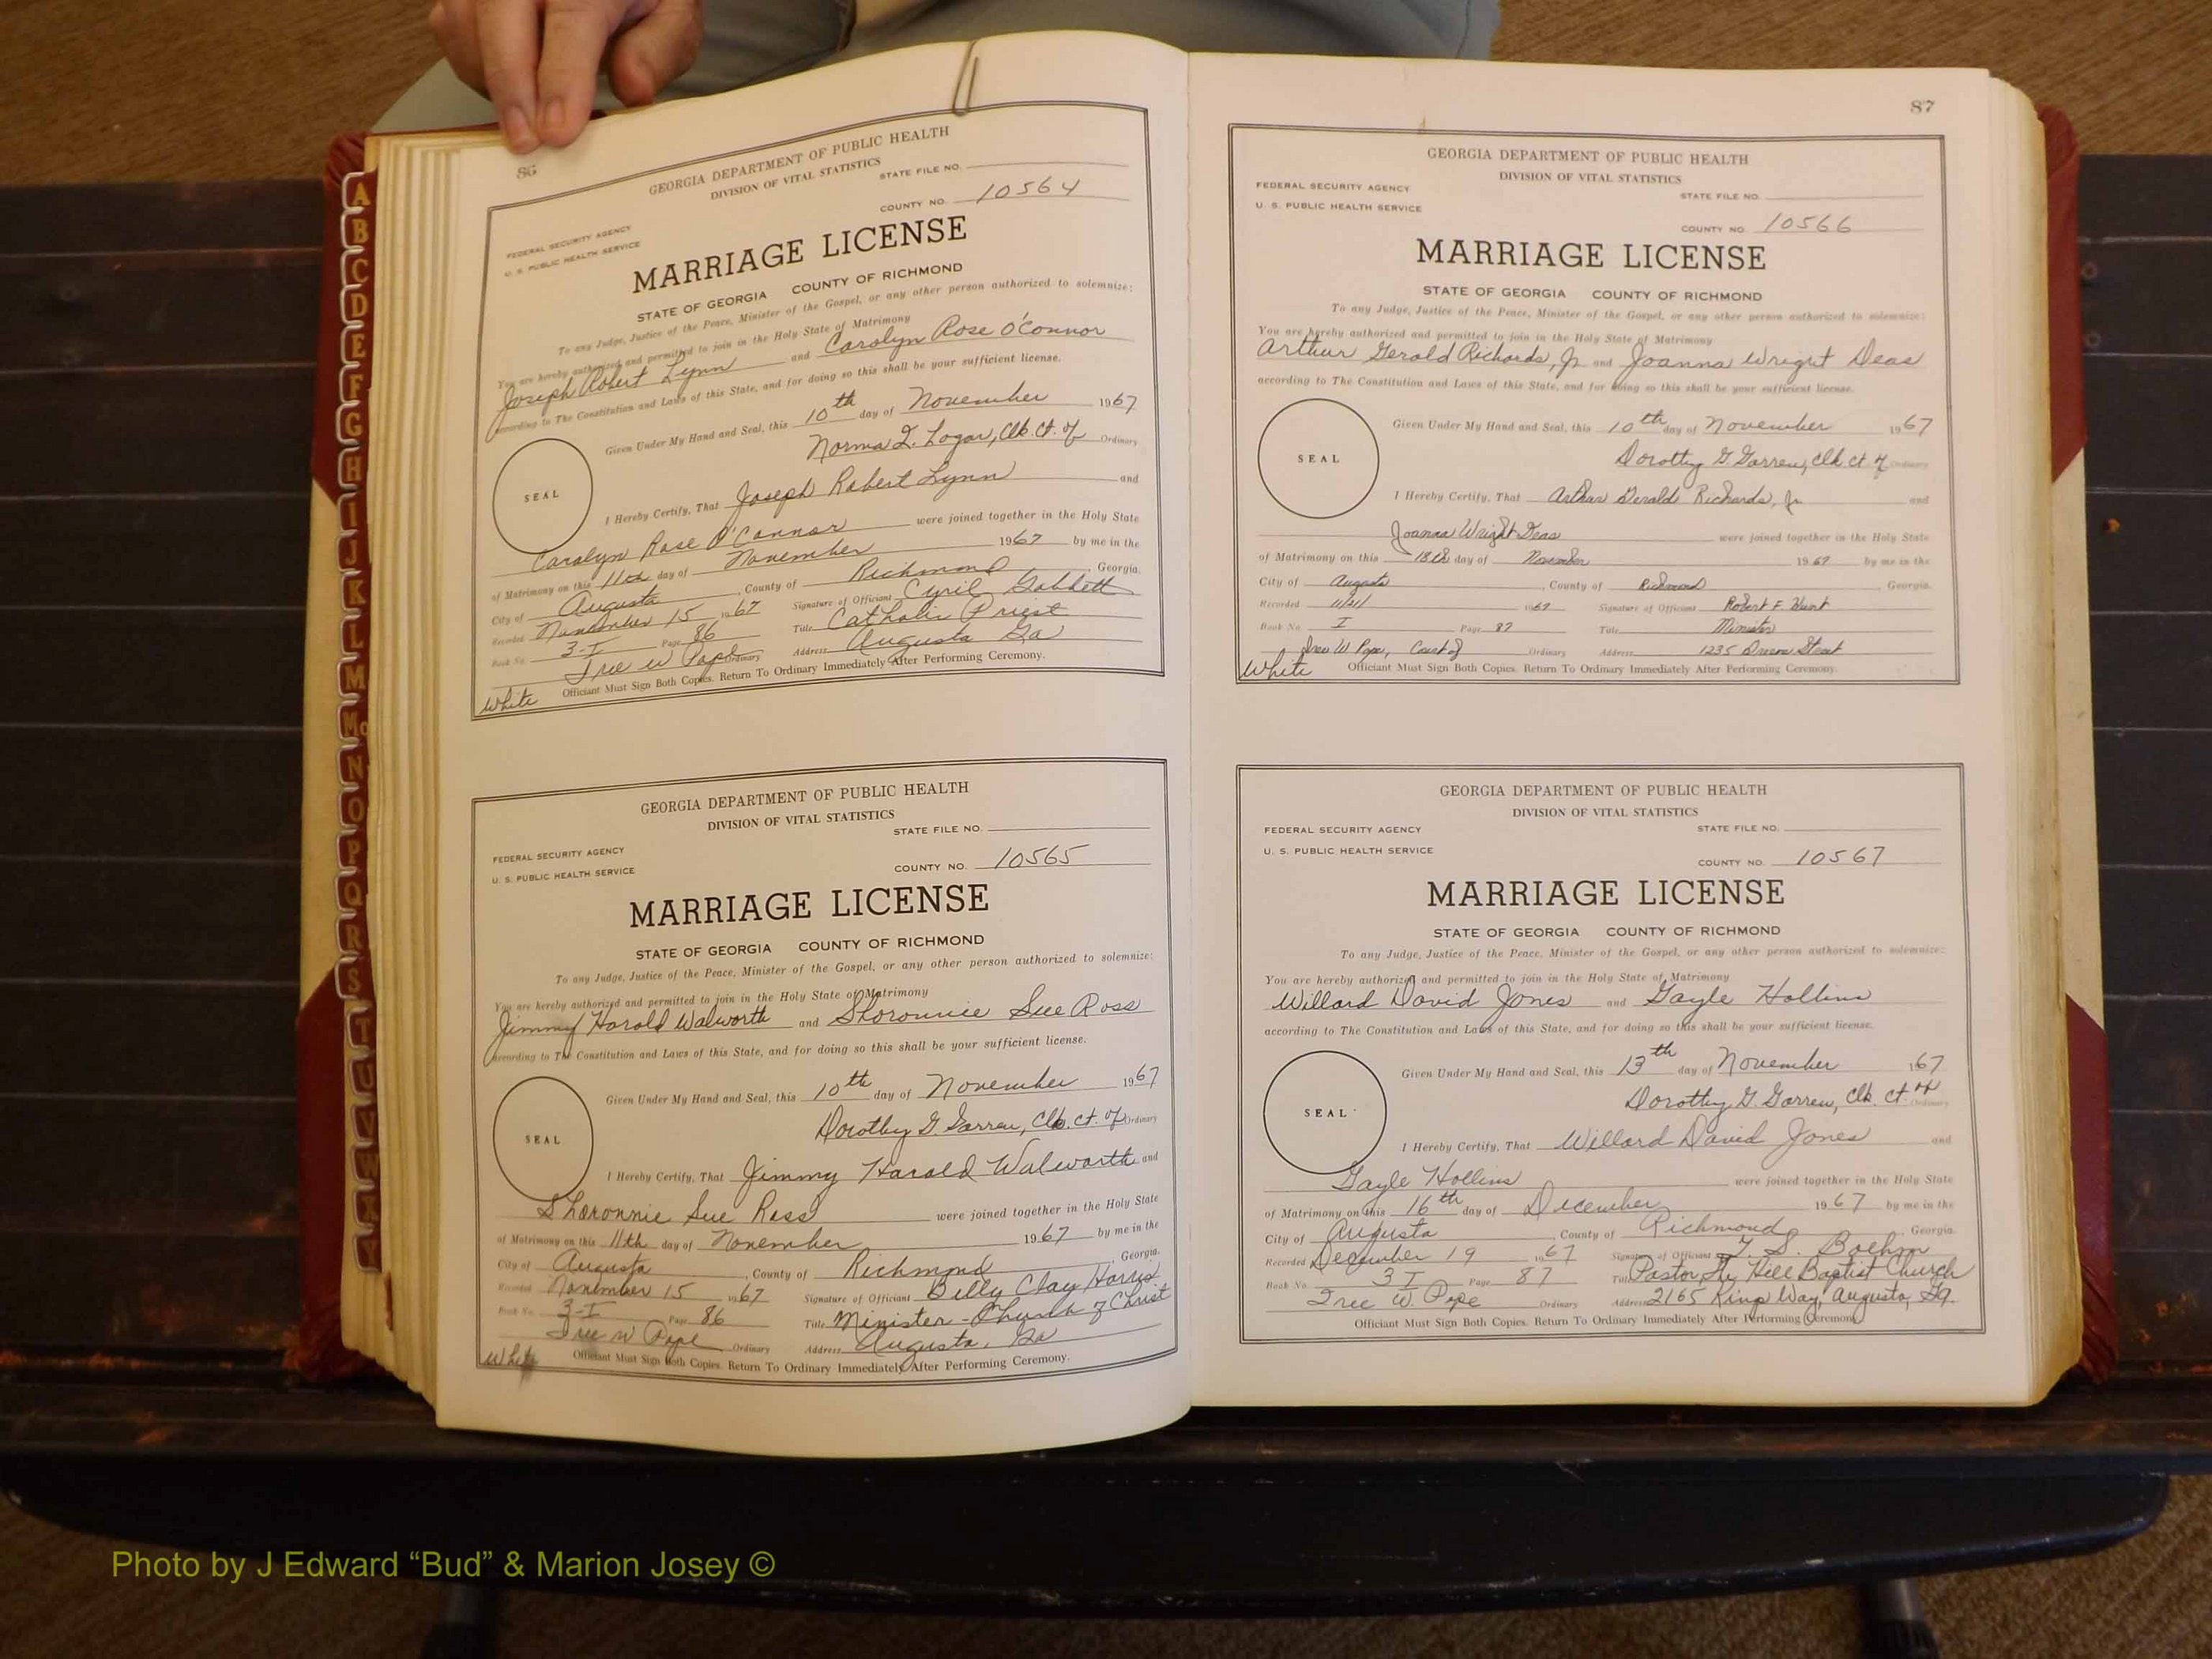 86
GEORGIA DEPARTMENT OF PUBLIC HEALTH
DIVISION OF VITAL STATISTICS
STATE FILE NO.
FEDERAL SECURITY AGENCY
U. S. PUBLIC HEALTH SERVICE
COUNTY NO. 10564
MARRIAGE LICENSE
STATE OF GEORGIA COUNTY OF RICHMOND
To any Judge, Justice of the Peace, Minister of the Gospel, or any other person authorized to solemnize:
You are hereby authorized and permitted to join in the Holy State of Matrimony
Joseph Robert Lynn and Carolyn Rose O'Connor
according to The Constitution and Laws of this State, and for doing so this shall be your sufficient license.
Given Under My Hand and Seal, this 10th day of November 1967
Norma L. Logan, Clk. Ct. of Ordinary
SEAL
I Hereby Certify, That Joseph Robert Lynn and
Carolyn Rose O'Connor were joined together in the Holy State
of Matrimony on this 11th day of November 1967 by me in the
City of Augusta, County of Richmond, Georgia.
Recorded November 15 1967 Signature of Officiant Cyril
Book No. 3-I Page 86 Title Catholic Priest
Tree W Pope Ordinary Address Augusta Ga
White Officiant Must Sign Both Copies. Return To Ordinary Immediately After Performing Ceremony.
GEORGIA DEPARTMENT OF PUBLIC HEALTH
DIVISION OF VITAL STATISTICS
STATE FILE NO.
FEDERAL SECURITY AGENCY
U. S. PUBLIC HEALTH SERVICE
COUNTY NO. 10565
MARRIAGE LICENSE
STATE OF GEORGIA COUNTY OF RICHMOND
To any Judge, Justice of the Peace, Minister of the Gospel, or any other person authorized to solemnize:
You are hereby authorized and permitted to join in the Holy State of Matrimony
Jimmy Harold Walworth and Sharonnie Sue Ross
according to The Constitution and Laws of this State, and for doing so this shall be your sufficient license.
Given Under My Hand and Seal, this 10th day of November 1967
Dorothy G. Garren, Clk. Ct. of Ordinary
SEAL
I Hereby Certify, That Jimmy Harold Walworth and
Sharonnie Sue Ross were joined together in the Holy State
of Matrimony on this 11th day of November 1967 by me in the
City of Augusta, County of Richmond, Georgia.
Recorded November 15 1967 Signature of Officiant Billy Clay Harris
Book No. 3-I Page 86 Title Minister - Church of Christ
Tree W Pope Ordinary Address Augusta, Ga
White Officiant Must Sign Both Copies. Return To Ordinary Immediately After Performing Ceremony.
87
GEORGIA DEPARTMENT OF PUBLIC HEALTH
DIVISION OF VITAL STATISTICS
FEDERAL SECURITY AGENCY
STATE FILE NO.
U. S. PUBLIC HEALTH SERVICE
COUNTY NO. 10566
MARRIAGE LICENSE
STATE OF GEORGIA COUNTY OF RICHMOND
To any Judge, Justice of the Peace, Minister of the Gospel, or any other person authorized to solemnize:
You are hereby authorized and permitted to join in the Holy State of Matrimony
Arthur Gerald Richards, Jr. and Joanna Wright Deas
according to The Constitution and Laws of this State, and for doing so this shall be your sufficient license.
Given Under My Hand and Seal, this 10th day of November 1967
Dorothy G Garren, Clk Ct of Ordinary
SEAL
I Hereby Certify, That Arthur Gerald Richards, Jr and
Joanna Wright Deas were joined together in the Holy State
of Matrimony on this 18th day of November 1967 by me in the
City of Augusta, County of Richmond, Georgia.
Recorded 11/21/ 1967 Signature of Officiant Robert F.
Book No. I Page 87 Title Minister
Tree W Pope, Court of Ordinary Address 1235 Street
White Officiant Must Sign Both Copies. Return To Ordinary Immediately After Performing Ceremony.
GEORGIA DEPARTMENT OF PUBLIC HEALTH
DIVISION OF VITAL STATISTICS
FEDERAL SECURITY AGENCY
STATE FILE NO.
U. S. PUBLIC HEALTH SERVICE
COUNTY NO. 10567
MARRIAGE LICENSE
STATE OF GEORGIA COUNTY OF RICHMOND
To any Judge, Justice of the Peace, Minister of the Gospel, or any other person authorized to solemnize:
You are hereby authorized and permitted to join in the Holy State of Matrimony
Willard David Jones and Gayle Hollins
according to The Constitution and Laws of this State, and for doing so this shall be your sufficient license.
Given Under My Hand and Seal, this 13th day of November 1967
Dorothy G. Garren, Clk. Ct. of Ordinary
SEAL
I Hereby Certify, That Willard David Jones and
Gayle Hollins were joined together in the Holy State
of Matrimony on this 16th day of December 1967 by me in the
City of Augusta, County of Richmond, Georgia.
Recorded December 19 1967 Signature of Officiant Boehm
Book No. 3 I Page 87 Title Pastor, Hill Baptist Church
Tree W. Pope Ordinary Address 2165 Kings Way, Augusta, Ga.
Officiant Must Sign Both Copies. Return To Ordinary Immediately After Performing Ceremony.
A
B
C
D
E
F
G
H
I
J
K
L
M
Mc
N
O
P
Q
R
S
T
U
V
W
X
Y
Photo by J Edward “Bud” & Marion Josey ©